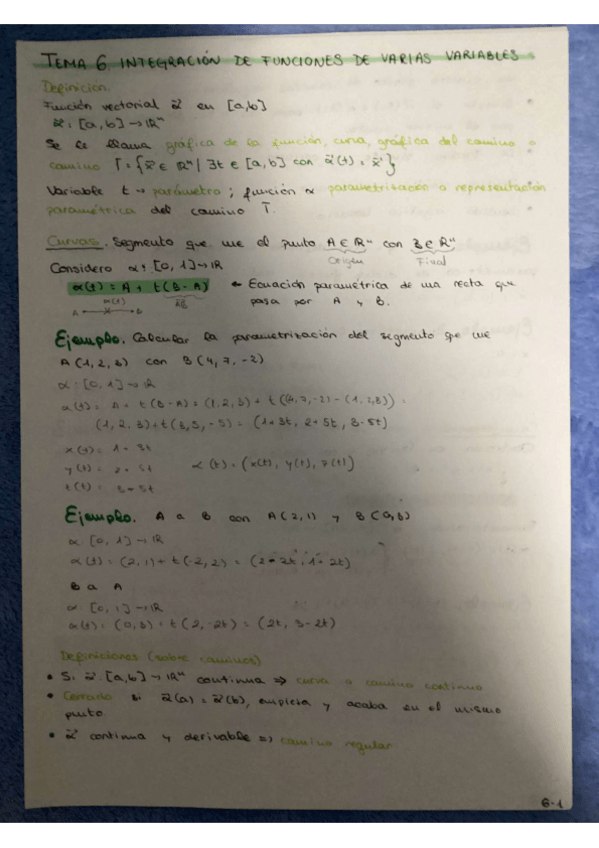 TEMA 6. INTEGRACIÓN DE FUNCIONES DE VARIAS VARIABLES
Definición.
Función vectorial α⃗ en [a,b]
α⃗: [a,b] → ℝⁿ
Se le llama gráfica de la función, curva, gráfica del camino o
camino Γ = {x⃗ ∈ ℝⁿ | ∃t ∈ [a,b] con α⃗(t) = x⃗}
Variable t → parámetro ; función α parametrización o representación
paramétrica del camino Γ.
Curvas. Segmento que une el punto A ∈ ℝⁿ con B ∈ ℝⁿ
Origen Final
Considero α : [0, 1] → ℝ
α(t) = A + t(B - A) Ecuación paramétrica de una recta que
pasa por A y B.
α(t)
A B
Ejemplo. Calcular la parametrización del segmento que une
A(1,2,3) con B(4,7,-2)
α : [0,1] → ℝ
α(t) = A + t(B-A) = (1,2,3) + t((4,7,-2) - (1,2,3)) =
(1,2,3) + t(3,5,-5) = (1+3t, 2+5t, 3-5t)
x(t) = 1+3t
y(t) = 2+5t α(t) = (x(t), y(t), z(t))
z(t) = 3-5t
Ejemplo. A a B con A(2,1) y B(0,3)
α: [0,1] → ℝ
α(t) = (2,1) + t(-2,2) = (2-2t, 1+2t)
B a A
α: [0,1] → ℝ
α(t) = (0,3) + t(2,-2t) = (2t, 3-2t)
Definiciones (sobre caminos)
• Si α⃗: [a,b] → ℝⁿ continua ⇒ curva o camino continuo
• Cerrado si α⃗(a) = α⃗(b), empieza y acaba en el mismo
punto.
• α⃗ continua y derivable ⇒ camino regular
6-1